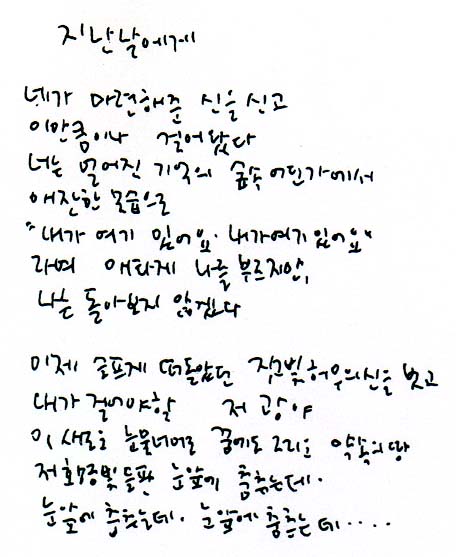 지난날에게
네가 마련해준 신을 신고
이만큼이나 걸어왔다
너는 멀어진 기억의 숲속 어딘가에서
애잔한 모습으로
"내가 여기 있어요. 내가 여기 있어요"
라며 애타게 나를 부르지만,
나는 돌아보지 않겠다
이제 슬프게 떠돌았던 잿빛 허우의 신을 벗고
내가 걸어야할 저 광야
이 새로운 눈물너머로 꿈에도 그리운 약속의 땅
저 황금빛 들판 눈앞에 춤추는데.
눈앞에 춤추는데. 눈앞에 춤추는데....